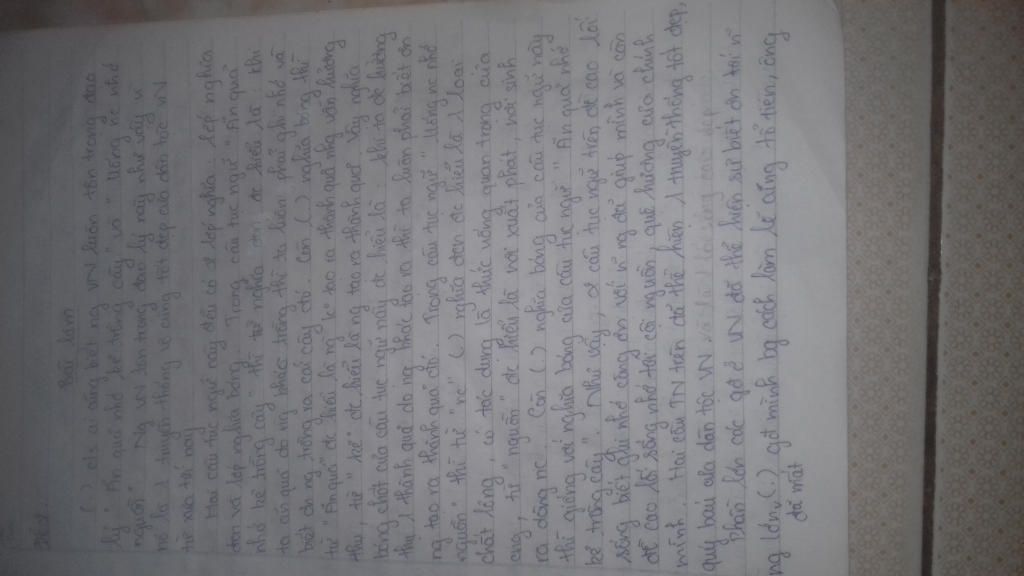 Bài làm
( ) ds ai cũng biết ng VN luôn tôn trọng đạo
lý " Ăn quả nhớ kẻ trồng cây" và " Uống nc nhớ
nguồn". Ng VN tôn trọng đạo lý này như vậy vì
nó là 1 truyền thống vô cùng tốt đẹp của dân tộc VN
từ xưa tới nay
Hai câu tục ngữ này đều có 2 lớp nghĩa: lớp nghĩa
đen và lớp nghĩa bóng. Trong câu tục ngữ "Ăn quả
nhớ kẻ trồng cây" thì từ nghĩa đen đc hiểu là: khi
ta ăn quả do ng khác trồng thì ta luôn phải ghi nhớ và
biết ơn ng trồng ra cái cây đó. Còn ( ) nghĩa bóng thì
từ "Ăn quả" đc hiểu là ng tạo ra thành quả nhg vẫn hưởng
thụ, từ "kẻ" đc hiểu là ng tạo ra thành quả. Vậy nghĩa
bóng chất của câu tục ngữ này đc hiểu là: khi ta đc hưởng
thụ 1 thành quả do ng khác tạo ra thì ta luôn phải biết ơn
ng tạo ra thành quả đó. Trong câu tục ngữ " Uống nc nhớ
nguồn" thì từ "nc" ( ) nghĩa đen đc hiểu là 1 loại
chất lỏng, có tác dụng là thức uống quan trọng của
ta, từ "nguồn" đc hiểu là nơi xuất phát, nơi sinh
ra dòng nc. Còn ( ) nghĩa bóng của câu tục ngữ này
thì giống với nghĩa bóng của câu tục ngữ " Ăn quả nhớ
kẻ trồng cây". Như vậy, 2 câu tục ngữ trên đề cao lối
sống biết ghi nhớ công ơn với ~ ng đã giúp mình và còn
đề cao lối sống nhớ tới cội nguồn, quê hương của chính
mình. Hai câu TN trên đã thể hiện 1 truyền thống tốt đẹp,
quý báu của dân tộc VN và là 1 lối sống cao đẹp
Phần lớn các gđ ở VN đã thể hiện sự biết ơn tới ~
ng lớn ( ) gđ mình bg cách làm lễ cúng tổ tiên, ông
đã mất